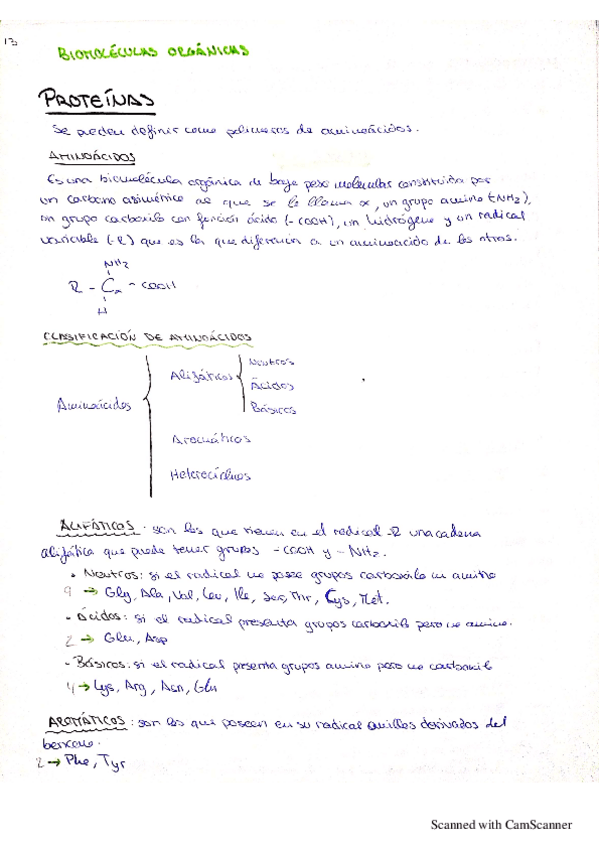 13
BIOMOLÉCULAS ORGÁNICAS
PROTEÍNAS
Se pueden definir como polímeros de aminoácidos.
AMINOÁCIDOS
Es una biomolécula orgánica de bajo peso molecular constituida por
un carbono asimétrico al que se le llama α, un grupo amino (-NH2),
un grupo carboxilo con función ácido (-COOH), un hidrógeno y un radical
variable (-R) que es lo que diferencia a un aminoácido de los otros.
NH2
R - Cα - COOH
H
CLASIFICACIÓN DE AMINOÁCIDOS
Neutros
Alifáticos
Ácidos
Aminoácidos
Básicos
Aromáticos
Heterocíclicos
ALIFÁTICOS: son los que tienen en el radical -R una cadena
alifática que puede tener grupos -COOH y -NH2.
• Neutros: si el radical no posee grupos carboxilo ni amino
9 → Gly, Ala, Val, Leu, Ile, Ser, Thr, Cys, Met.
- Ácidos: si el radical presenta grupos carboxilo pero no amino.
2 → Glu, Asp
- Básicos: si el radical presenta grupos amino pero no carboxilo
4 → Lys, Arg, Asn, Gln
AROMÁTICOS: son los que poseen en su radical anillos derivados del
benceno.
2 → Phe, Tyr
Scanned with CamScanner